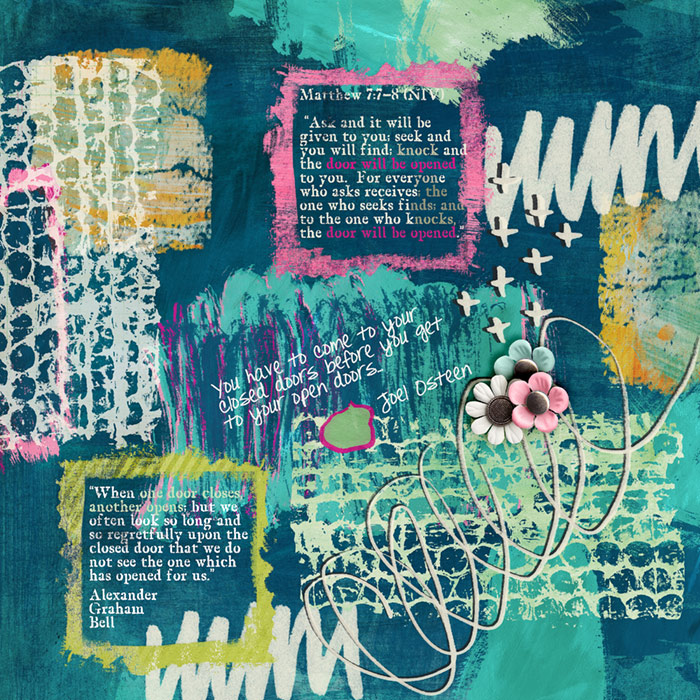 Matthew 7:7-8 (NIV)
"Ask and it will be
given to you; seek and
you will find; knock and
the door will be opened
to you. For everyone
who asks receives; the
one who seeks finds; and
to the one who knocks,
the door will be opened."
You have to come to your
closed doors before you get
to your open doors...
Joel Osteen
"When one door closes,
another opens; but we
often look so long and
so regretfully upon the
closed door that we do
not see the one which
has opened for us."
Alexander
Graham
Bell